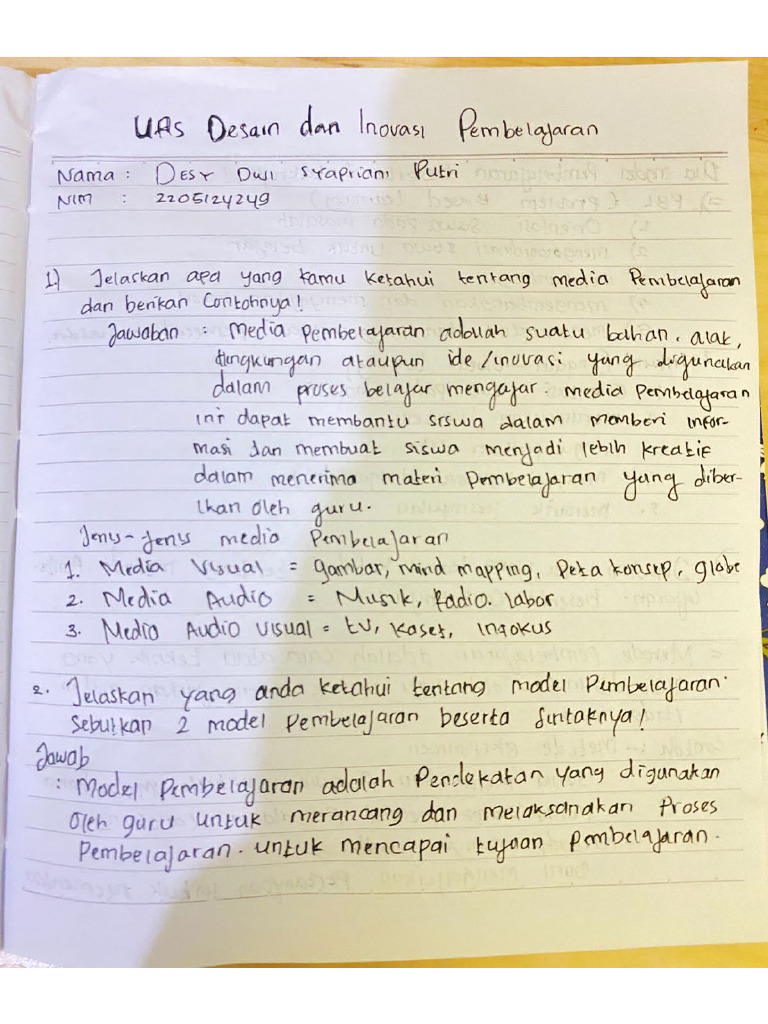 UAS Desain dan Inovasi Pembelajaran
Nama : Desy Dwi Syapriani Putri
NIM : 2205124249
1) Jelaskan apa yang kamu ketahui tentang media Pembelajaran
dan berikan Contohnya!
Jawaban : Media pembelajaran adalah suatu bahan, alat,
lingkungan ataupun ide/inovasi yang digunakan
dalam proses belajar mengajar. media Pembelajaran
ini dapat membantu siswa dalam memberi infor-
masi dan membuat siswa menjadi lebih kreatif
dalam menerima materi Pembelajaran yang diber-
ikan oleh guru.
Jenis-Jenis media Pembelajaran
1. Media Visual = gambar, mind mapping, Peta konsep, globe
2. Media Audio = Musik, Radio. labor
3. Media Audio Visual = tv, kaset, infokus
2. Jelaskan yang anda ketahui tentang model Pembelajaran.
Sebutkan 2 model Pembelajaran beserta Sintaknya!
Jawab
: Model Pembelajaran adalah Pendekatan yang digunakan
oleh guru untuk merancang dan melaksanakan Proses
Pembelajaran. untuk mencapai tujuan Pembelajaran.